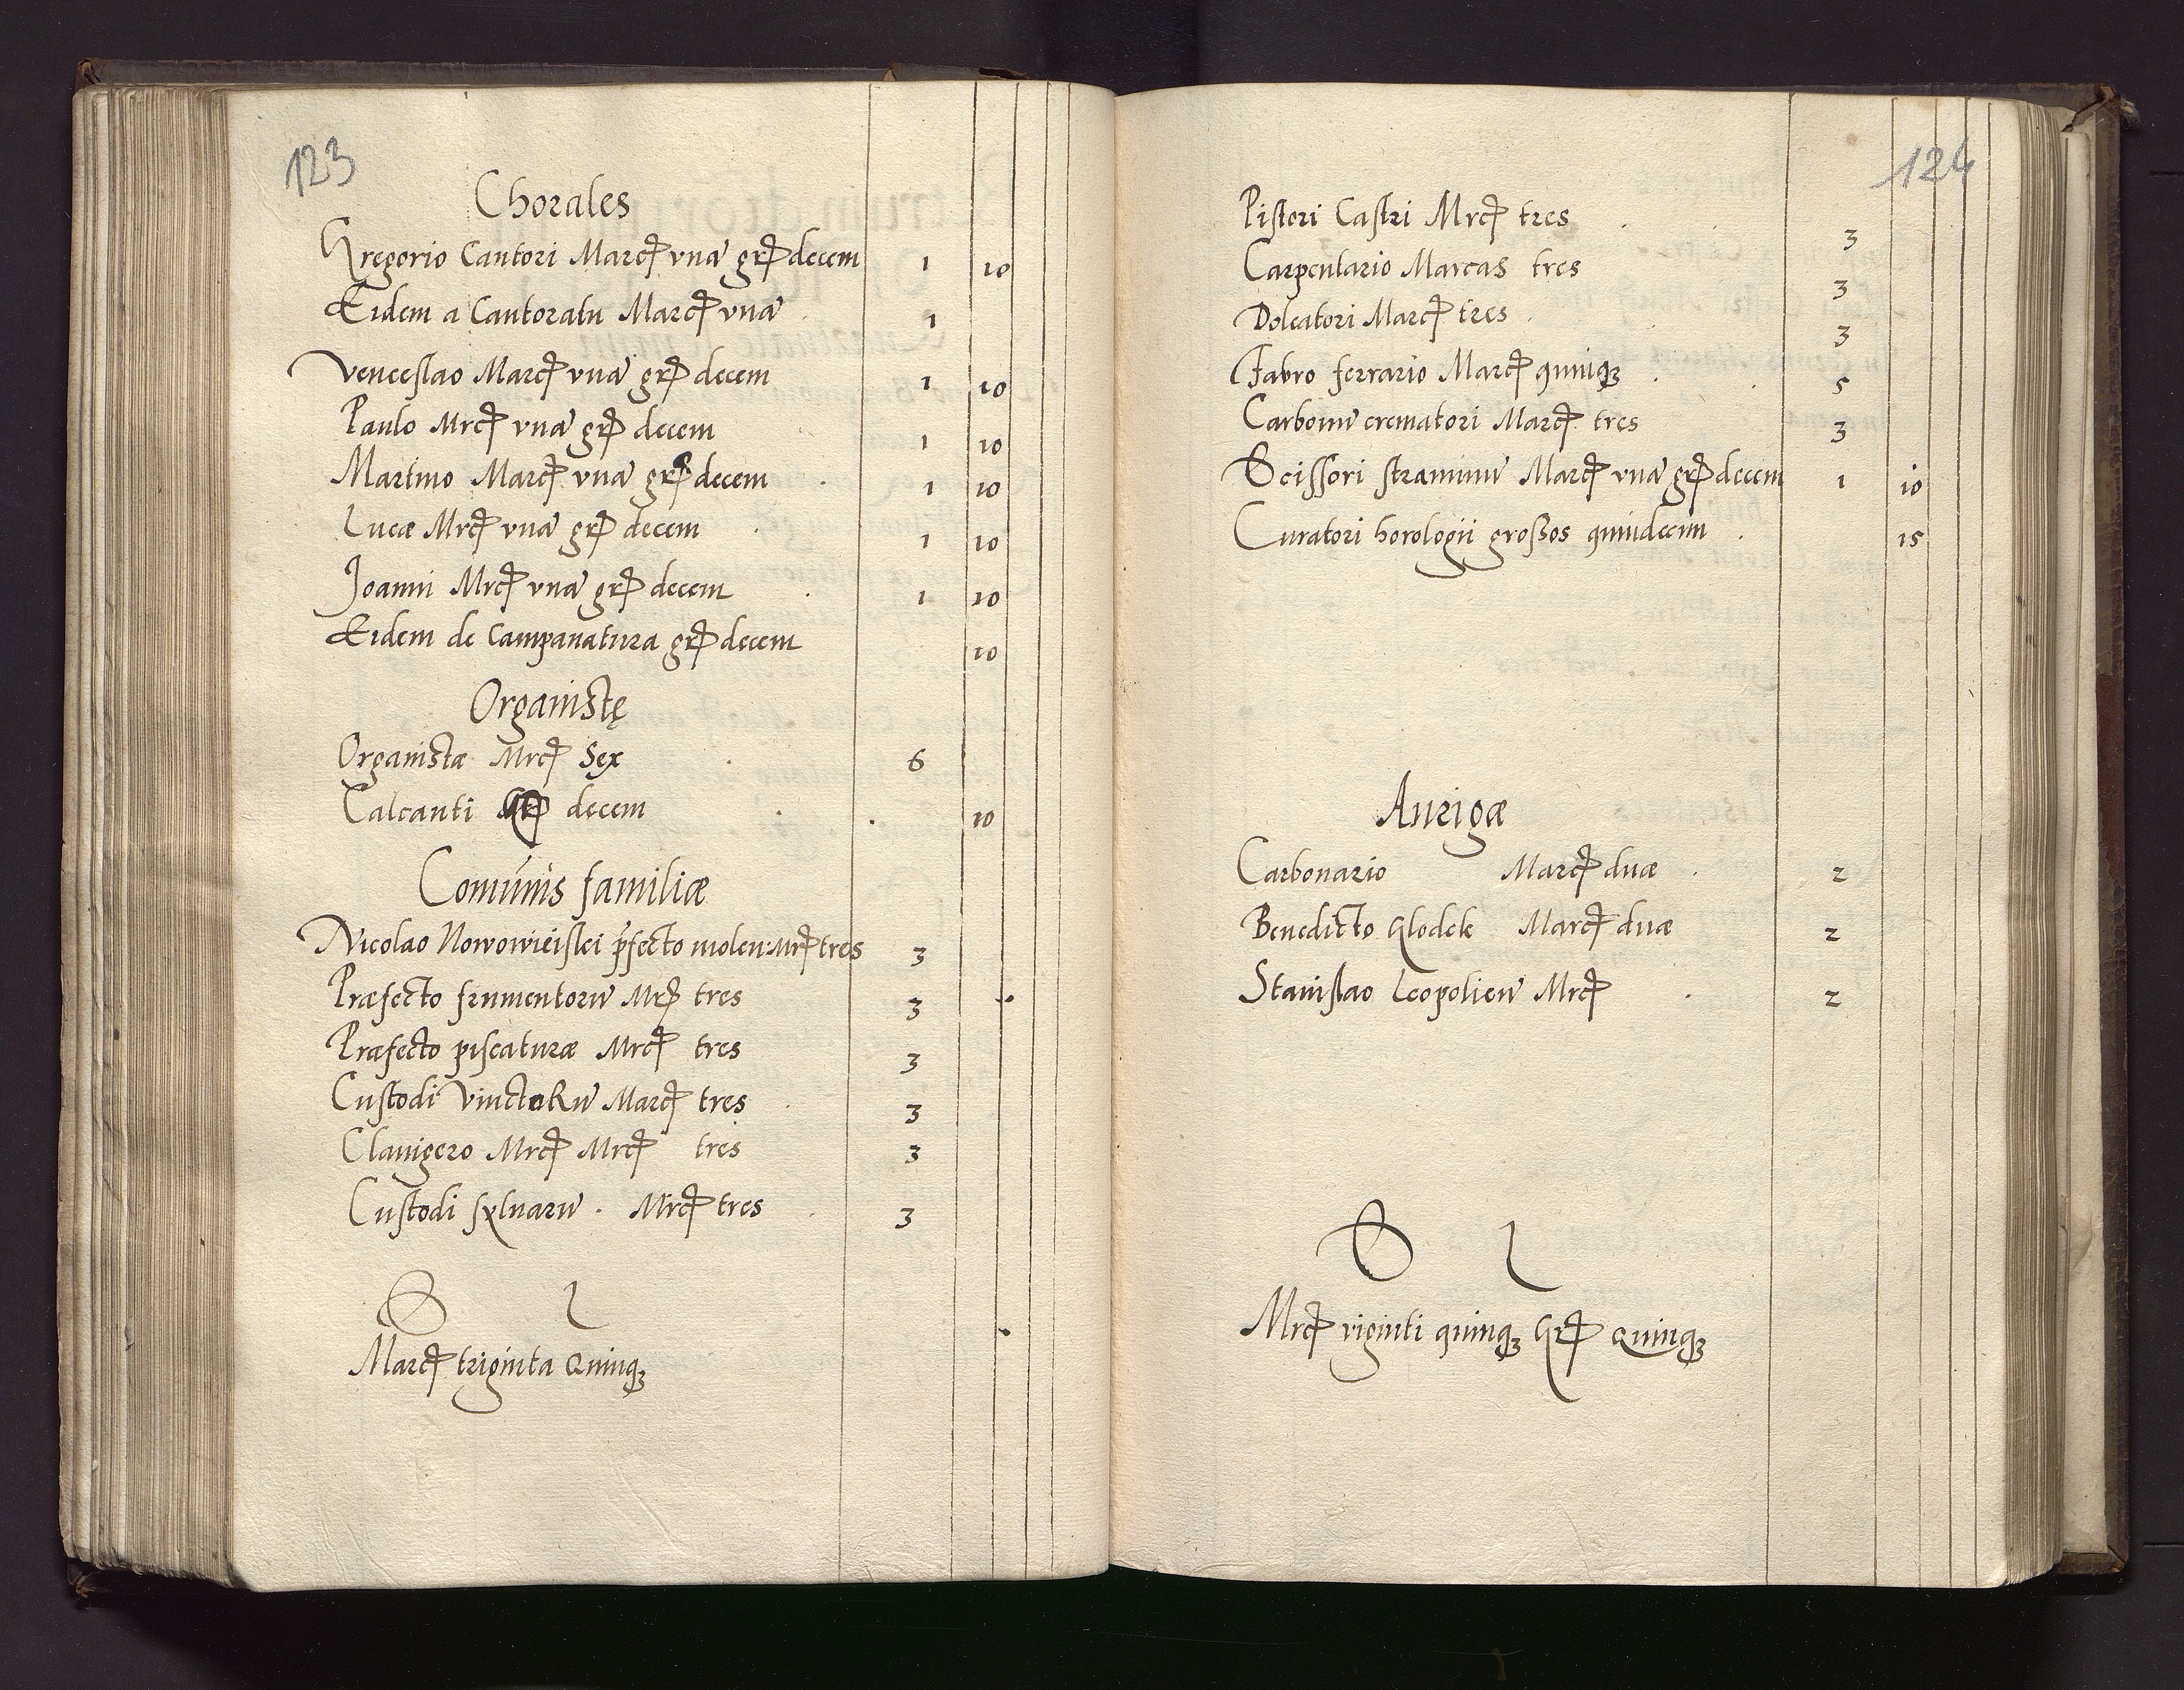 123
Chorales
Gregorio Cantori Marcę unã gr̃ decem 1 10
Eidem a Cantoratu Marcę unã 1
Venceslao Marcę vnã gr̃ decem 1 10
Paulo Mrcę vnã gr̃ decem 1 10
Martino Marcę vnã gr̃ decem 1 10
Lucæ Mrcę vnã gr̃ decem 1 10
Joanni Mrcę vnã gr̃ decem 1 10
Eidem de Campanatura gr̃ decem 10
Organistę
Organistæ Mrcę Sex 6
Calcanti Gr̃ decem 10
Comunis familiæ
Nicolao Nowowieislci p̃fecto molen: Mrę tres 3
Præfecto frumentorũ Mrę tres 3
Præfecto piscaturæ Mrcę tres 3
Custodi VinctoRũ Marcę tres 3
Clauigero Mrcę Mrcę tres 3
Custodi syluarũ . Mrcę tres 3
S l
Marcę triginta Quinqȝ
124
Pistori Castri Mrcę tres 3
Carpentario Marcas tres 3
Doleatori Marcę tres 3
Fabro ferrario Marcę quinqȝ 5
Carbonũ crematori Marcę tres 3
Scissori straminũ Marcę vnã gr̃ decem 1 10
Curatori horologii grossos quindecim 15
Aurigæ
Carbonario Marcę duæ 2
Benedicto Glodek Marcę duæ 2
Stanislao Leopolien̄ Mrcę 2
S l
Mrcę viginti quinqȝ Gr̃ Quinqȝ